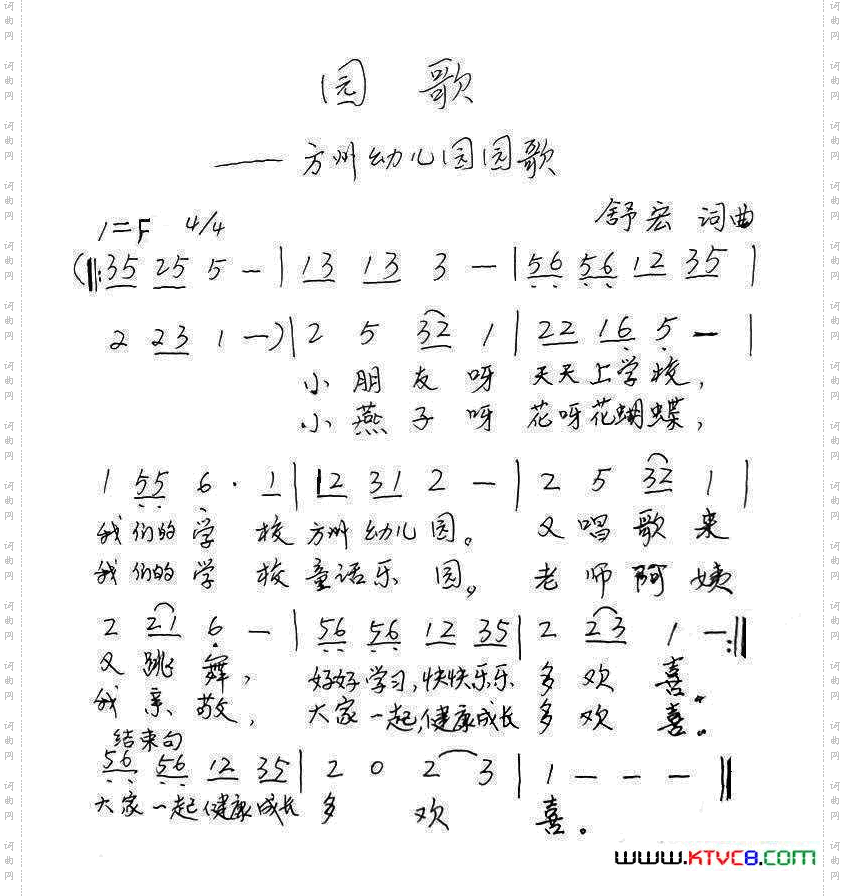 园 歌
—— 方州幼儿园园歌
舒宏 词曲
1=F 4/4
(‖:35 25 5 - | 13 13 3 - | 56 56 12 35 |
2 23 1 -)| 2 5 32 1 | 22 16 5 - |
小 朋 友 呀 天天上学校,
小 燕 子 呀 花呀花蝴蝶,
1 55 6 · 1 | 12 31 2 - | 2 5 32 1 |
我 们的 学 校 方州 幼儿 园。 又 唱 歌 来
我 们的 学 校 童话乐 园。 老 师 阿 姨
2 21 6 - | 56 56 12 35 | 2 23 1 - :‖
又 跳 舞, 好好学习,快快乐乐 多 欢 喜。
我 亲 敬, 大家一起,健康成长 多 欢 喜。
结束句
56 56 12 35 | 2 0 2 3 | 1 - - - ‖
大家一起健康成长 多 欢 喜。
www.KTVC8.com
词曲网